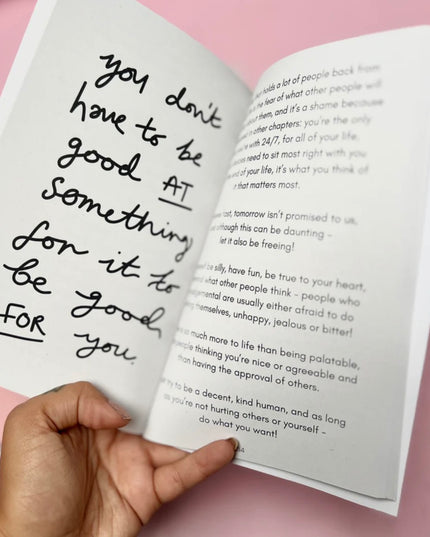 you don't
have to be
good AT
something
for it to
be good
FOR you.
holds a lot of people back from
the fear of what other people will
about them, and it's a shame because
in other chapters: you're the only
with 24/7, for all of your life,
need to sit most right with you
end of your life, it's what you think of
that matters most.
tomorrow isn't promised to us,
although this can be daunting -
let it also be freeing!
be silly, have fun, be true to your heart,
what other people think - people who
are usually either afraid to do
themselves, unhappy, jealous or bitter!
so much more to life than being palatable,
people thinking you're nice or agreeable and
than having the approval of others.
try to be a decent, kind human, and as long
as you're not hurting others or yourself -
do what you want!